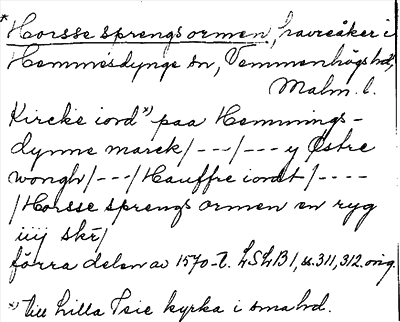 *Horsse sprengs ormen, havreåker i
Hemmesdynge sn, Vemmenhögs hd,
Malm. l.
Kircke iord *) paa Hemmings-
dynne marck/---/--- y Østre
wongh/---/Hauffre iordt/----
/Horsse sprengs ormen en ryg
iiij skr/
förra delen av 1570-t. LSLB 1, s. 311, 312. orig.
*) till Lilla Isie kyrka i sma hd.